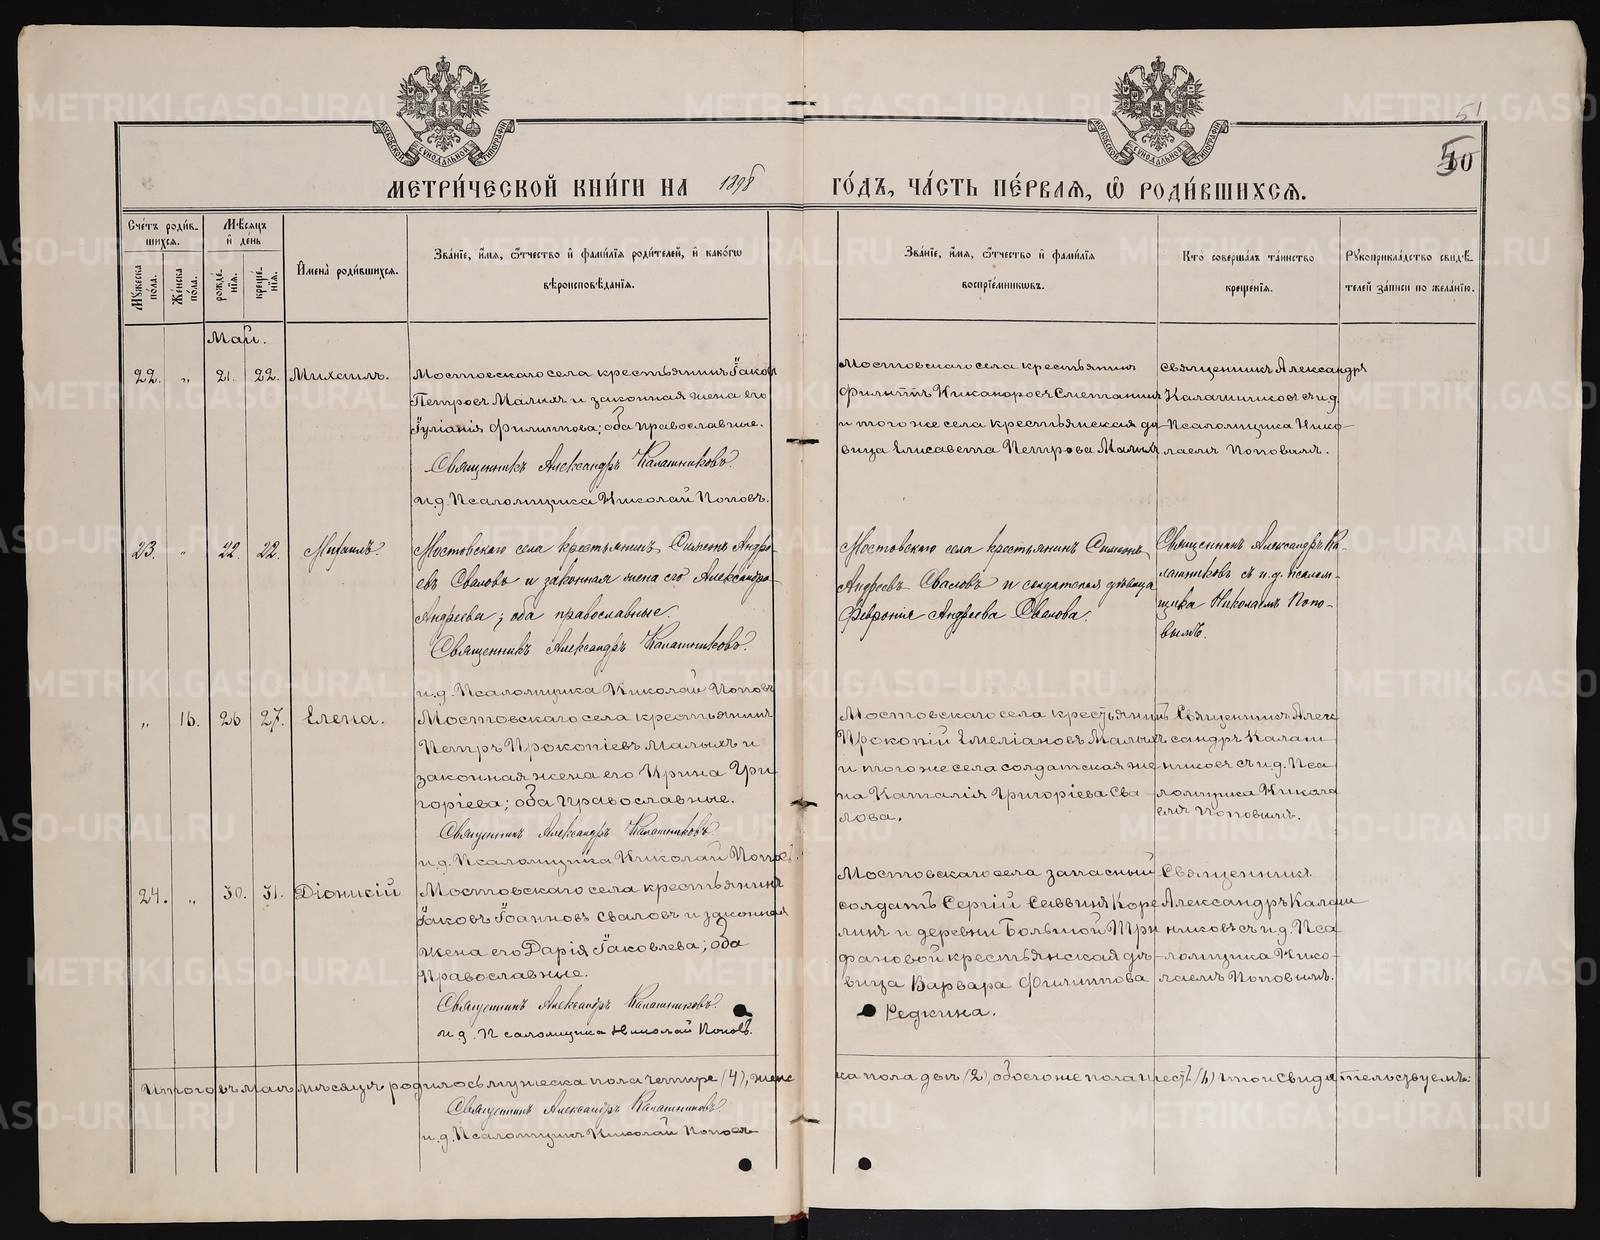 МЕТРИ́ЧЕСКОЙ КНИ́ГИ НА 1898 ГО́ДЪ, ЧА́СТЬ ПЕ́РВАЯ, Ѡ РОДИ́ВШИХСЯ.
51
50
Сче́тъ роди́в-
шихся.
Мѣ́сяцъ
и҆ де́нь
Мꙋ́жеска
по́ла.
Же́нска
по́ла.
рожде́-
нїѧ.
креще́-
нїѧ.
И҆мена̀ роди́вшихсѧ.
Зва́нїе, и҆́мѧ, ѻ҆́тчество и҆ фами́лїѧ роди́телей, и҆ како́гѡ
вѣроисповѣ́данїѧ.
Зва́нїе, и҆́мѧ, ѻ҆́тчество и҆ фами́лїѧ
воспрїе́мникѡвъ.
Кто̀ соверша́лъ та́инство
креще́нїѧ.
Рꙋкоприкла́дство свидѣ́-
телей за́писи по жела́нїю.
Май.
22. „ 21. 22. Михаилъ.
Мостовскаго села крестьянинъ Іаковъ
Петровъ Малыхъ и законная жена его
Іуліанія Филиппова; оба православные.
Священникъ Александръ Калашниковъ.
и.д. Псаломщика Николай Поповъ.
Мостовскаго села крестьянинъ
Филиппъ Никаноровъ Сметанинъ
и того же села крестьянская дѣ-
вица Елисавета Петрова Малыхъ
Священникъ Александръ
Калашниковъ съ и.д.
Псаломщика Нико-
лаемъ Поповымъ.
23. „ 22. 22. Михаилъ.
Мостовскаго села крестьянинъ Симеонъ Андре-
евъ Сваловъ и законная жена его Александра
Андреева; оба православные.
Священникъ Александръ Калашниковъ.
и.д. Псаломщика Николай Поповъ
Мостовскаго села крестьянинъ Симеонъ
Андреевъ Сваловъ и солдатская дѣвица
Февронія Андреева Свалова.
Священникъ Александръ Ка-
лашниковъ съ и.д. псалом-
щика Николаемъ Попо-
вымъ.
„ 16. 26 27. Елена.
Мостовскаго села крестьянинъ
Петръ Прокопіевъ Малыхъ и
законная жена его Ирина Гри-
горіева; оба православные.
Священникъ Александръ Калашниковъ
и.д. Псаломщика Николай Поповъ.
Мостовскаго села крестьянинъ
Прокопій Емеліановъ Малыхъ
и того же села солдатская же-
на Наталія Григоріева Сва-
лова.
Священникъ Алек-
сандръ Калаш-
никовъ съ и.д. Пса-
ломщика Никола-
емъ Поповымъ.
24. „ 30. 31. Діонисій
Мостовскаго села крестьянинъ
Іаковъ Іоанновъ Сваловъ и законная
жена его Дарія Іаковлева; оба
Православные.
Священникъ Александръ Калашниковъ.
и.д. Псаломщика Николай Поповъ.
Мостовскаго села запасный
солдатъ Сергій Саввинъ Коре-
линъ и деревни Большой Три-
фановой крестьянская дѣ-
вица Варвара Филиппова
Редкина.
Священникъ
Александръ Калаш-
никовъ съ и.д. Пса-
ломщика Нико-
лаемъ Поповымъ.
Итого въ маѣ мѣсяцѣ родилось мужеска пола четыре (4), женс-
ка пола двѣ (2), обоего же пола шесть (6) что и свидѣтельствуемъ:
Священникъ Александръ Калашниковъ.
и.д. Псаломщика Николай Поповъ